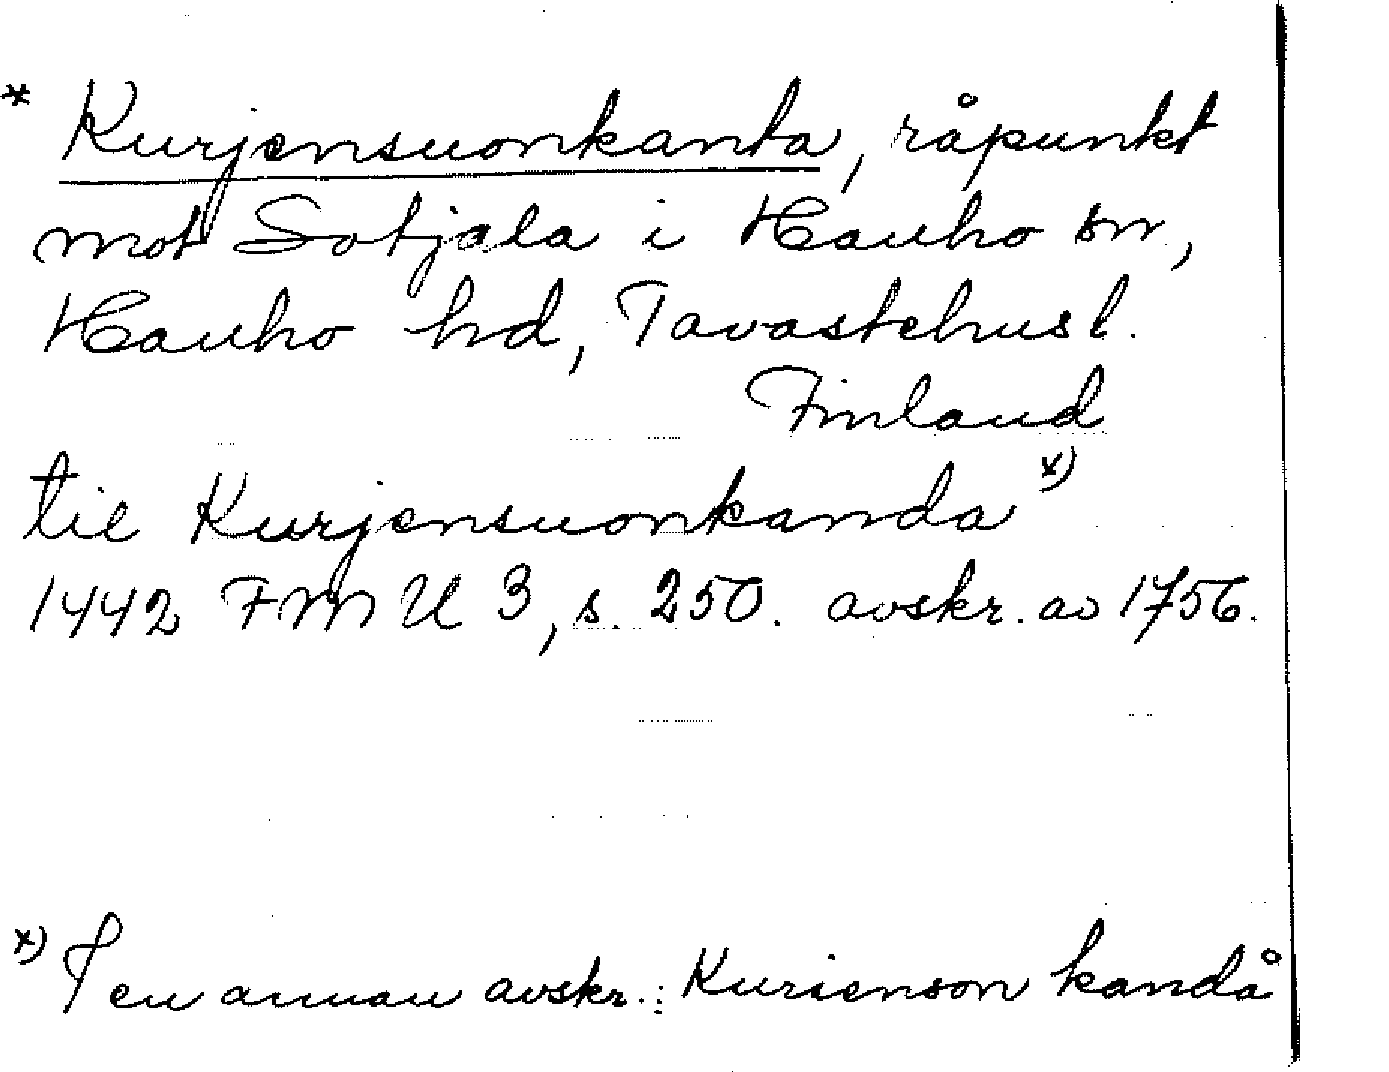 * Kurjensuonkanta, råpunkt
mot Sotjala i Hauho sn,
Hauho hd, Tavastehus l.
Finland
til Kurjensuonkanda x)
1442 FMU 3, s. 250. avskr. av 1756.
x) I en annan avskr.: Kurienson kandå